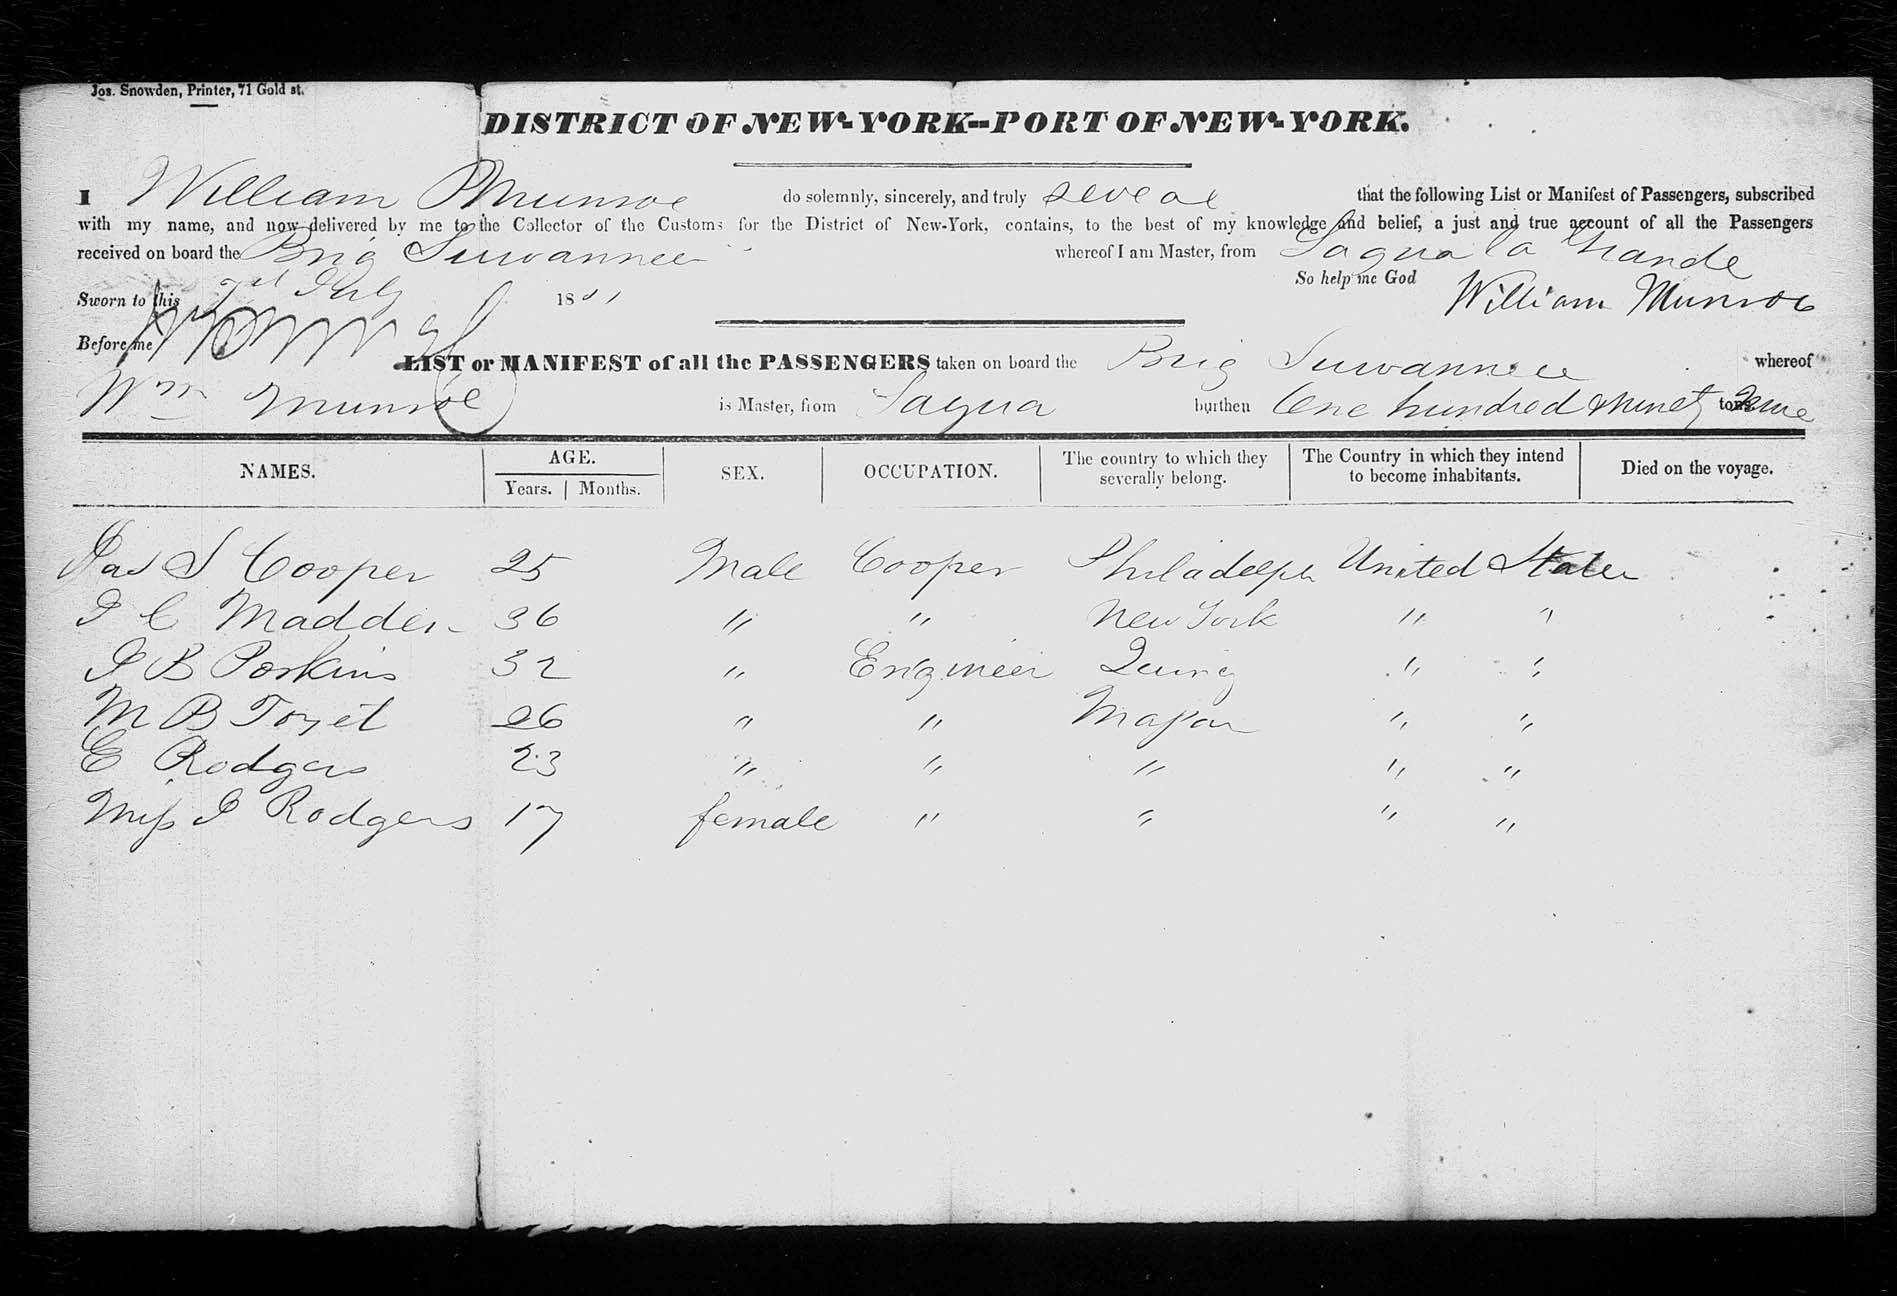 Jos. Snowden, Printer, 71 Gold st.
DISTRICT OF NEW-YORK--PORT OF NEW-YORK.
I William Munroe do solemnly, sincerely, and truly that the following List or Manifest of Passengers, subscribed
with my name, and now delivered by me to the Collector of the Customs for the District of New-York, contains, to the best of my knowledge and belief, a just and true account of all the Passengers
received on board the Brig Suwannee whereof I am Master, from Sagua la Grande
So help me God
Sworn to this July 18 William Munroe
Before me
LIST or MANIFEST of all the PASSENGERS taken on board the Brig Suwannee whereof
Wm Munroe is Master, from Sagua burthen One hundred & ninety tons.
NAMES. AGE. SEX. OCCUPATION. The country to which they severally belong. The Country in which they intend to become inhabitants. Died on the voyage.
Years. Months.
Jas S Cooper 25 Male Cooper Philadelph United States
J C Madden 36 " " New York " "
J B Porkins 32 " Engineer " "
M B 26 " " " "
E Rodgers 23 " " " " "
Miss J Rodgers 17 female " " " "